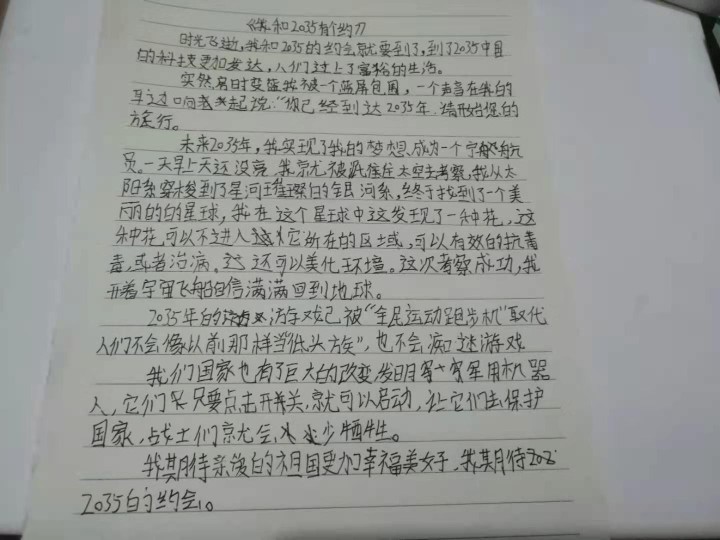 《我和2035有个约》
时光飞逝,我和2035的约会就要到了,到了2035中国
的科技更加发达,人们过上了富裕的生活。
突然,我被一个蓝屏包围,一个声音在我的
耳边响起说:“你已经到达2035年,请开始您的
旅行。
未来2035年,我实现了我的梦想,成为一个宇航
员。一天早上天还没亮,我就被派往太空去考察,我从太
阳系穿梭到了星河璀璨的银河系,终于找到了一个美
丽的的星球,我在这个星球中这发现了一种花,这
种花可以不进入它所在的区域,可以有效的抗毒
毒,或者治病。这还可以美化环境。这次考察成功,我
开着宇宙飞船自信满满回到地球。
2035年的游戏已被“全民运动跑步机”取代
人们不会像以前那样当“低头族”,也不会痴迷游戏
我们国家也有了巨大的改变,发明军用机器
人,它们只要点击开关,就可以启动,让它们去保护
国家,战士们就会少牺牲。
我期待后的祖国更加幸福美好,我期待202
2035的约会。